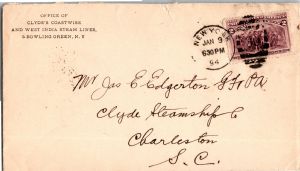 OFFICE OF
CLYDE'S COASTWISE
AND WEST INDIA STEAM LINES,
5 BOWLING GREEN, N.Y.
NEW YORK
JAN 9
630PM
94
Mr Jas E Edgerton G F P A
Clyde Steamship Co
Charleston
S. C.